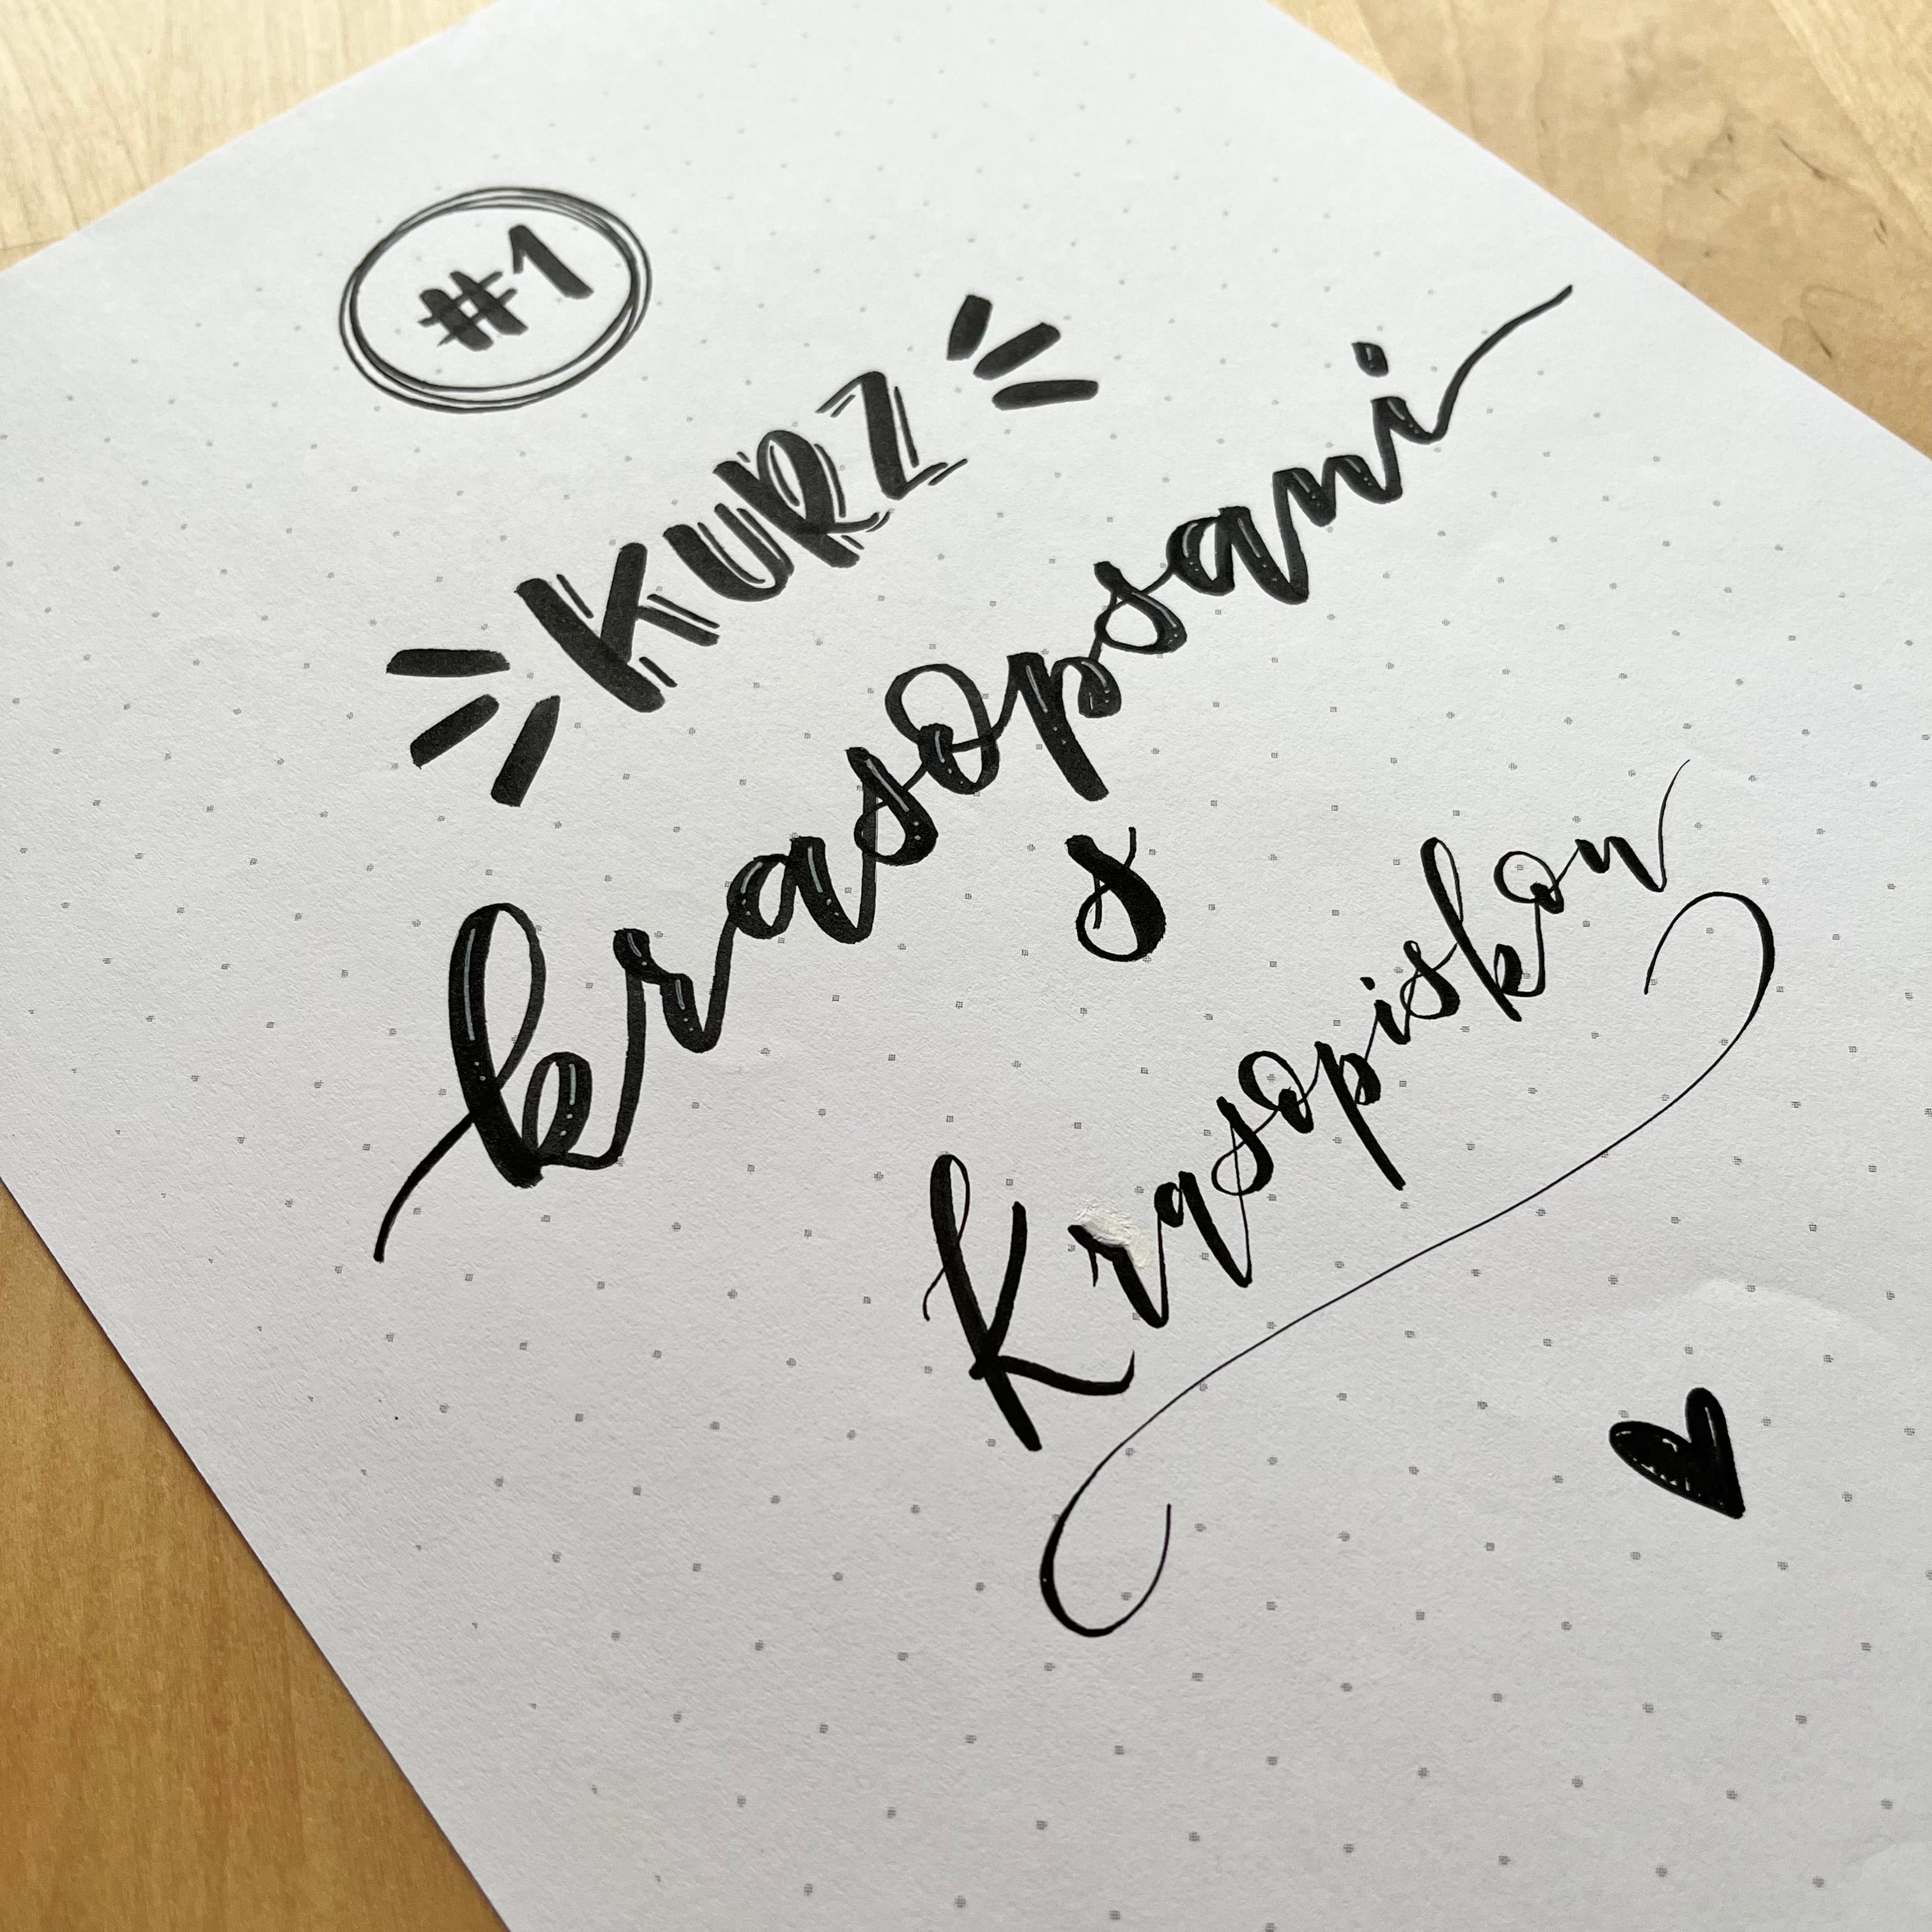 #1
KURZ
krasopsani
s
Krasopiskou